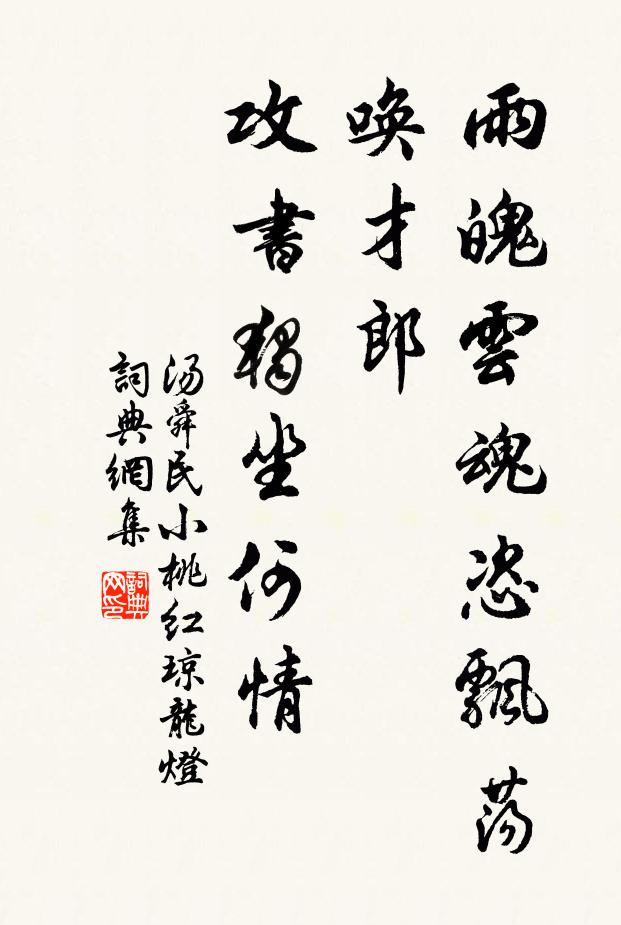 雨魄雲魂恣飄蕩
喚才郎
攻書獨坐何情
湯舜民小桃紅琼龍燈
詞典網集
詞典
网印